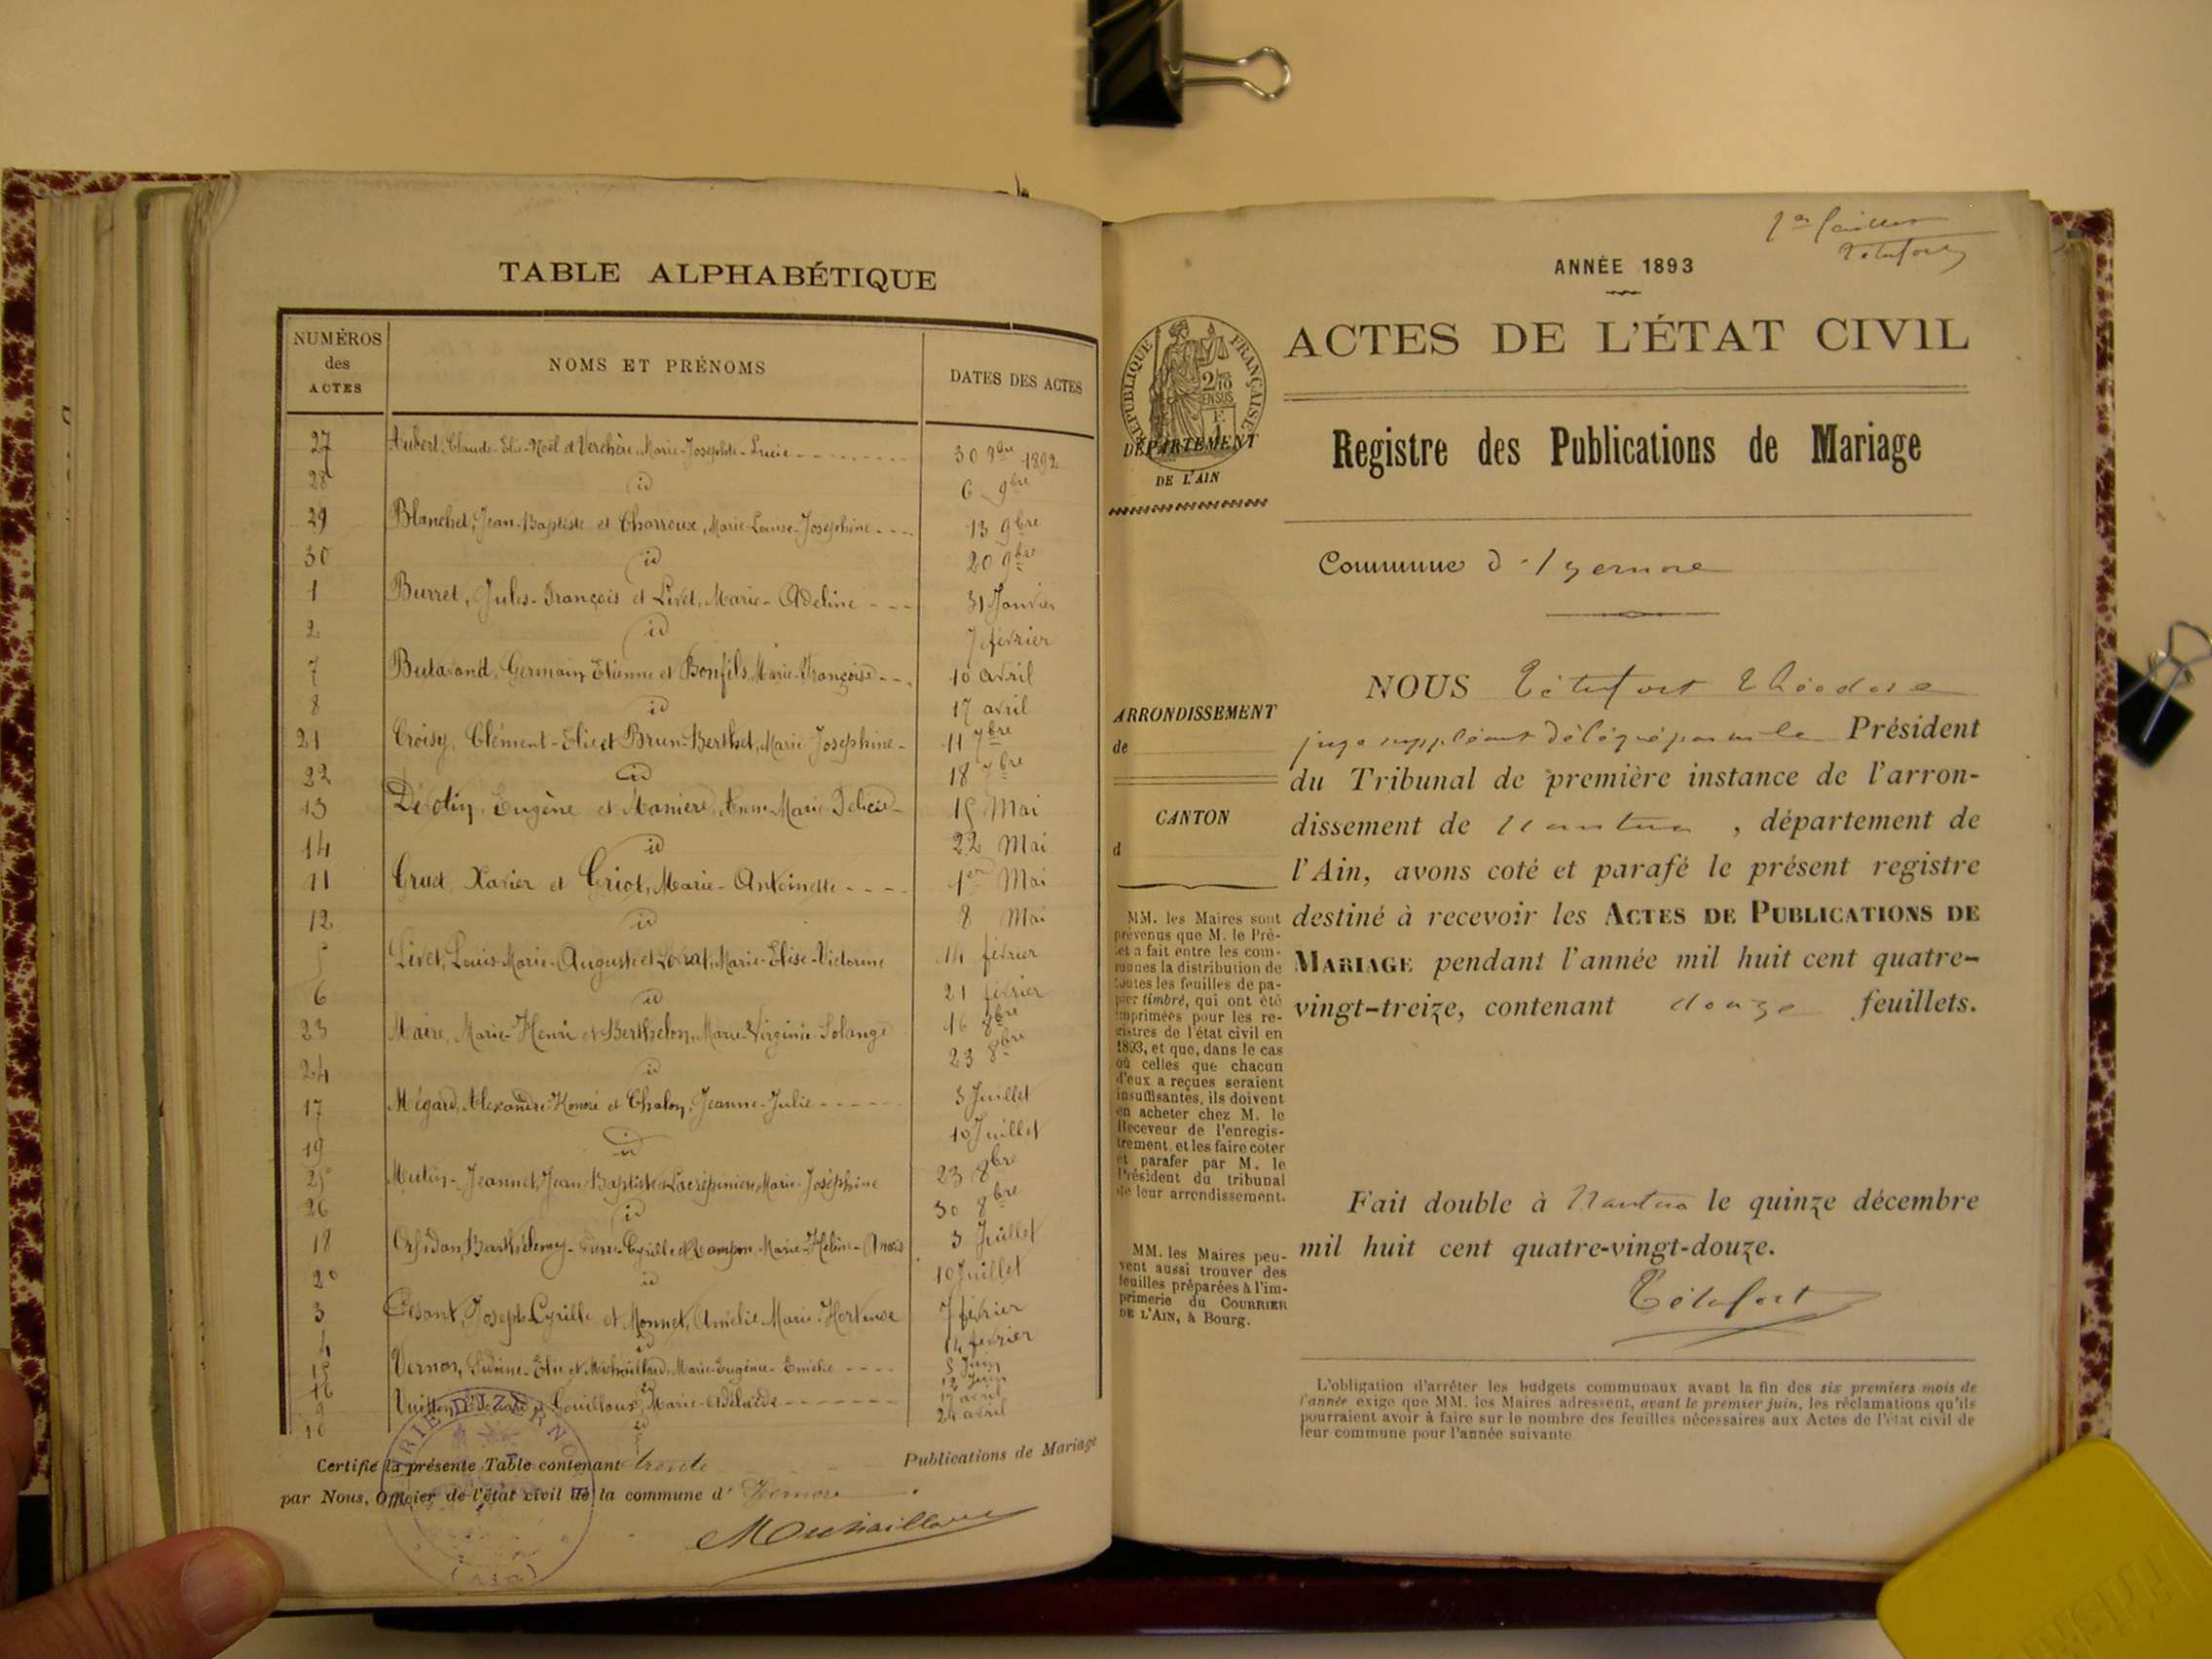 TABLE ALPHABÉTIQUE
NUMÉROS des ACTES
NOMS ET PRÉNOMS
DATES DES ACTES
27 Aubert, Claude-Elie-Noël et Verchère, Marie-Josephte-Lucie 30 8bre 1892
28 id 6 9bre
29 Blanchet, Jean-Baptiste et Charroux, Marie-Louise-Joséphine 13 9bre
30 id 20 9bre
1 Burret, Jules-François et Livet, Marie-Adeline 31 Janvier
2 id 7 février
7 Butavand, Germain Etienne et Bonfils, Marie-Françoise 10 avril
8 id 17 avril
21 Croisy, Clément-Elie et Brun-Berthet, Marie Joséphine 11 7bre
22 id 18 7bre
13 Dévotin, Eugène et Manière, Anne-Marie 15 Mai
14 id 22 Mai
11 Gruet Xavier et Griot, Marie-Antoinette 1er Mai
12 id 8 Mai
5 Livet, Louis-Marie-Auguste et Marie-Elise-Victorine 14 février
6 id 21 février
23 Maire, Marie-Henri et Berthelon, Marie-Virginie-Solange 16 8bre
24 id 23 8bre
17 Mégard, Alexandre-Honoré et Chalon, Jeanne-Julie 3 Juillet
19 id 10 Juillet
25 Mutin-Jeannet, Jean-Baptiste et Lacrépinière, Marie-Joséphine 23 8bre
26 id 30 8bre
18 Barthélemy Cyrille et Marie-Hélène 3 Juillet
20 id 10 Juillet
3 Joseph-Cyrille et Monnet, Amélie-Marie-Hortense 7 février
4 id 14 février
15 Vernon, Elie et Marie-Eugénie 5 Juin
16 id 12 Juin
9 et Gouilloux, Marie-Adélaïde 17 avril
10 id 24 avril
Certifié la présente Table contenant trente Publications de Mariage
par Nous, Officier de l'état civil de la commune d' Izernore.
MAIRIE D'IZERNORE
(Ain)
1er feuillet
Tétafort
ANNÉE 1893
ACTES DE L'ÉTAT CIVIL
RÉPUBLIQUE FRANÇAISE
2/10 EN SUS
DÉPARTEMENT
DE L'AIN
Registre des Publications de Mariage
Commune d'Izernore
ARRONDISSEMENT
de
CANTON
d
NOUS Tétafort Théodore
juge suppléant délégué par m le Président
du Tribunal de première instance de l'arron-
dissement de Nantua, département de
l'Ain, avons coté et parafé le présent registre
destiné à recevoir les ACTES DE PUBLICATIONS DE
MARIAGE pendant l'année mil huit cent quatre-
vingt-treize, contenant douze feuillets.
MM. les Maires sont
prévenus que M. le Pré-
fet a fait entre les com-
munes la distribution de
toutes les feuilles de pa-
pier timbré, qui ont été
imprimées pour les re-
gistres de l'état civil en
1893, et que, dans le cas
où celles que chacun
d'eux a reçues seraient
insuffisantes, ils doivent
en acheter chez M. le
Receveur de l'enregis-
trement, et les faire coter
et parafer par M. le
Président du tribunal
de leur arrondissement.
MM. les Maires peu-
vent aussi trouver des
feuilles préparées à l'im-
primerie du COURRIER
DE L'AIN, à Bourg.
Fait double à Nantua le quinze décembre
mil huit cent quatre-vingt-douze.
Tétafort
L'obligation d'arrêter les budgets communaux avant la fin des six premiers mois de
l'année exige que MM. les Maires adressent, avant le premier juin, les réclamations qu'ils
pourraient avoir à faire sur le nombre des feuilles nécessaires aux Actes de l'état civil de
leur commune pour l'année suivante